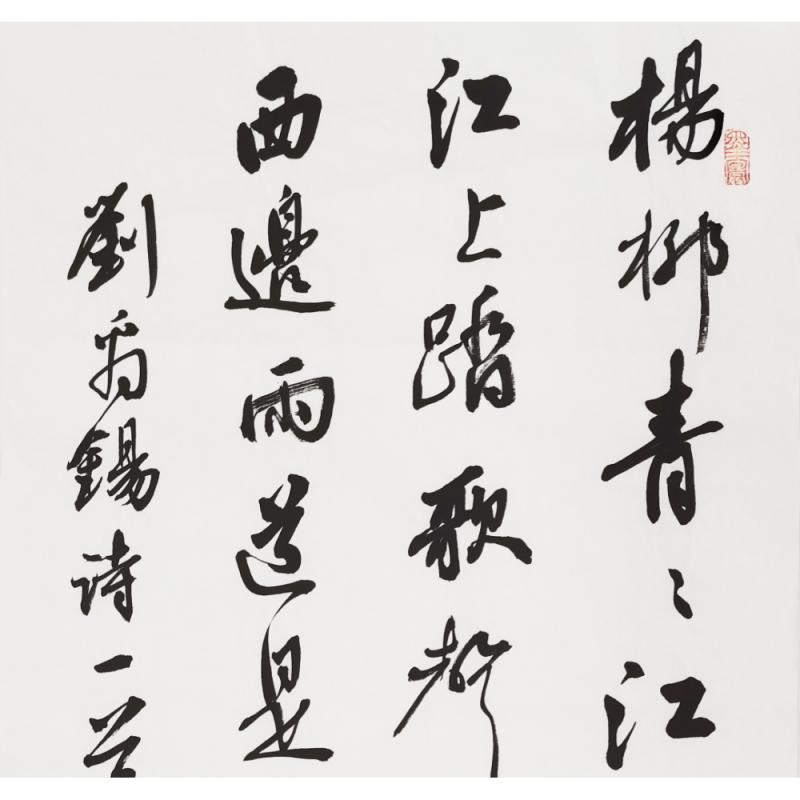 楊柳青〻江
江上踏歌聲
西邊雨道是
劉禹錫詩一首